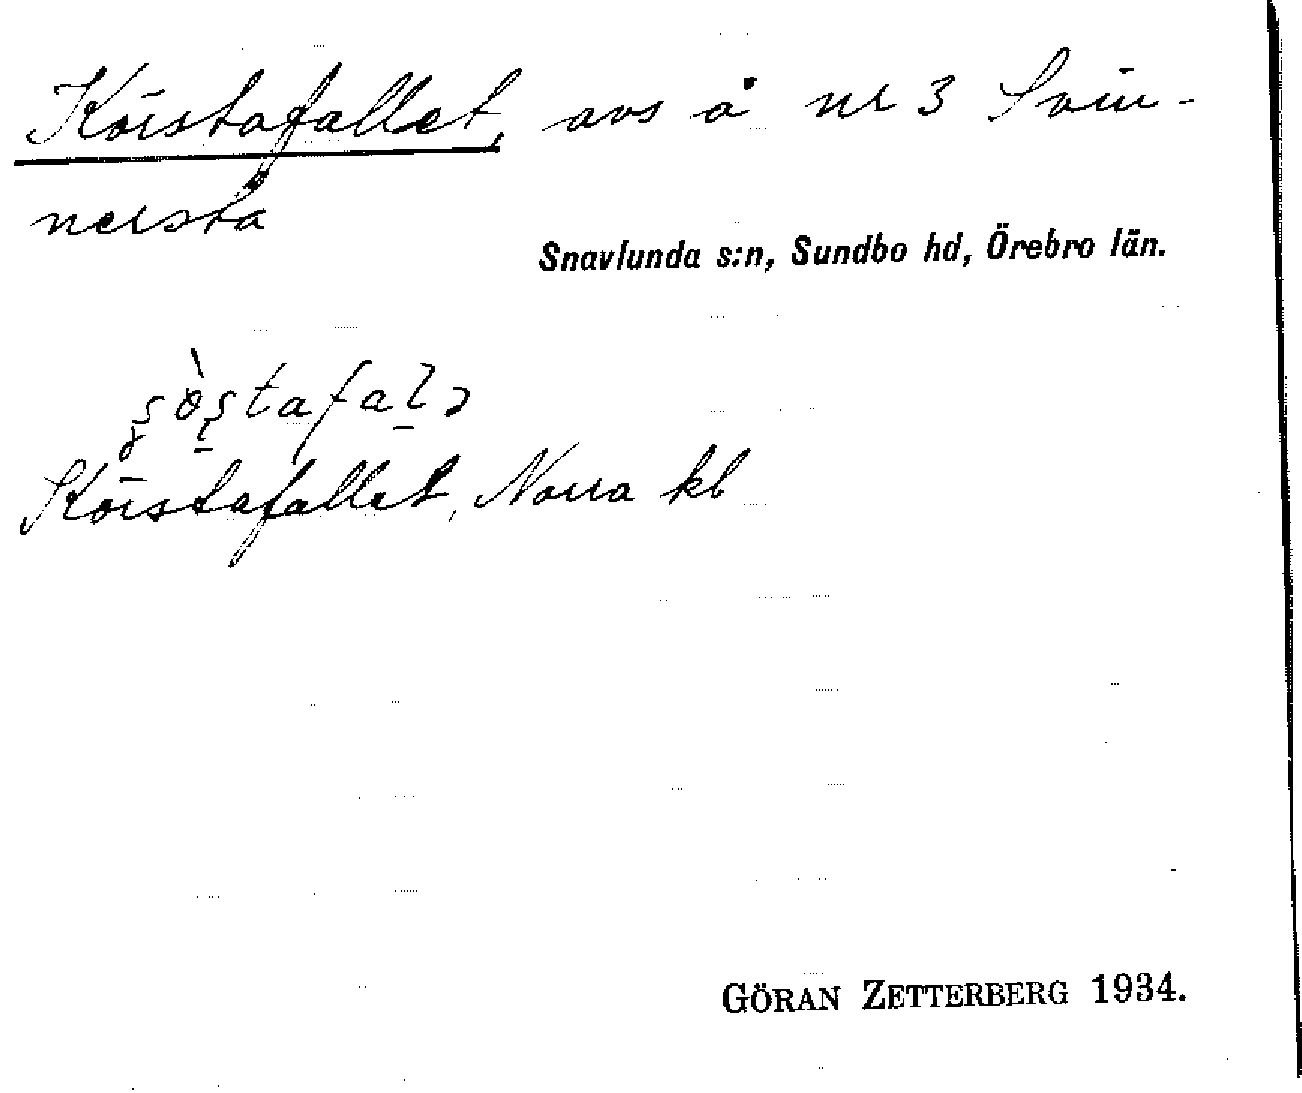 Körstafallet, avs å nr 3 Svin-
nersta
Snavlunda s:n, Sundbo hd, Örebro län.
Körstafallet, Norra kb
GÖRAN ZETTERBERG 1934.